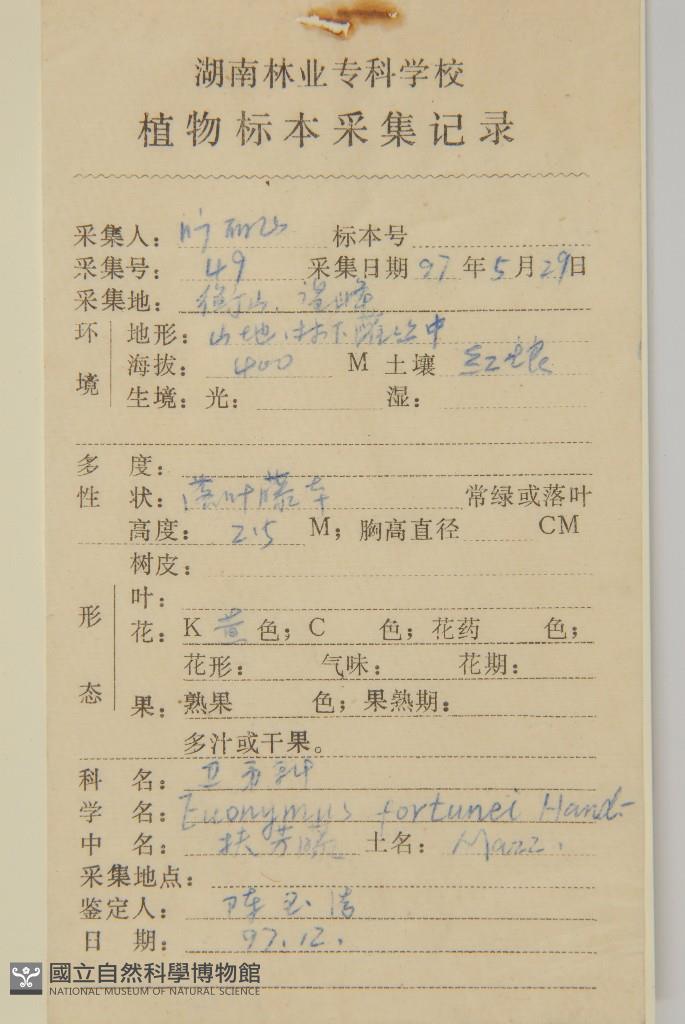 湖南林业专科学校
植物标本采集记录
采集人: 标本号
采集号: 49 采集日期 97年5月29日
采集地: 衡山
环境
地形: 山地,林下灌丛中
海拔: 400 M 土壤 红壤
生境: 光: 湿:
多度:
性状: 落叶藤本 常绿或落叶
高度: 2.5 M; 胸高直径 CM
形态
树皮:
叶:
花: K 黄 色; C 色; 花药 色;
花形: 气味: 花期:
果: 熟果 色; 果熟期:
多汁或干果。
科名: 卫矛科
学名: Euonymus fortunei Hand-
中名: 扶芳藤 土名: Mazz.
采集地点:
鉴定人: 陈
日期: 97.12.
國立自然科學博物館
NATIONAL MUSEUM OF NATURAL SCIENCE